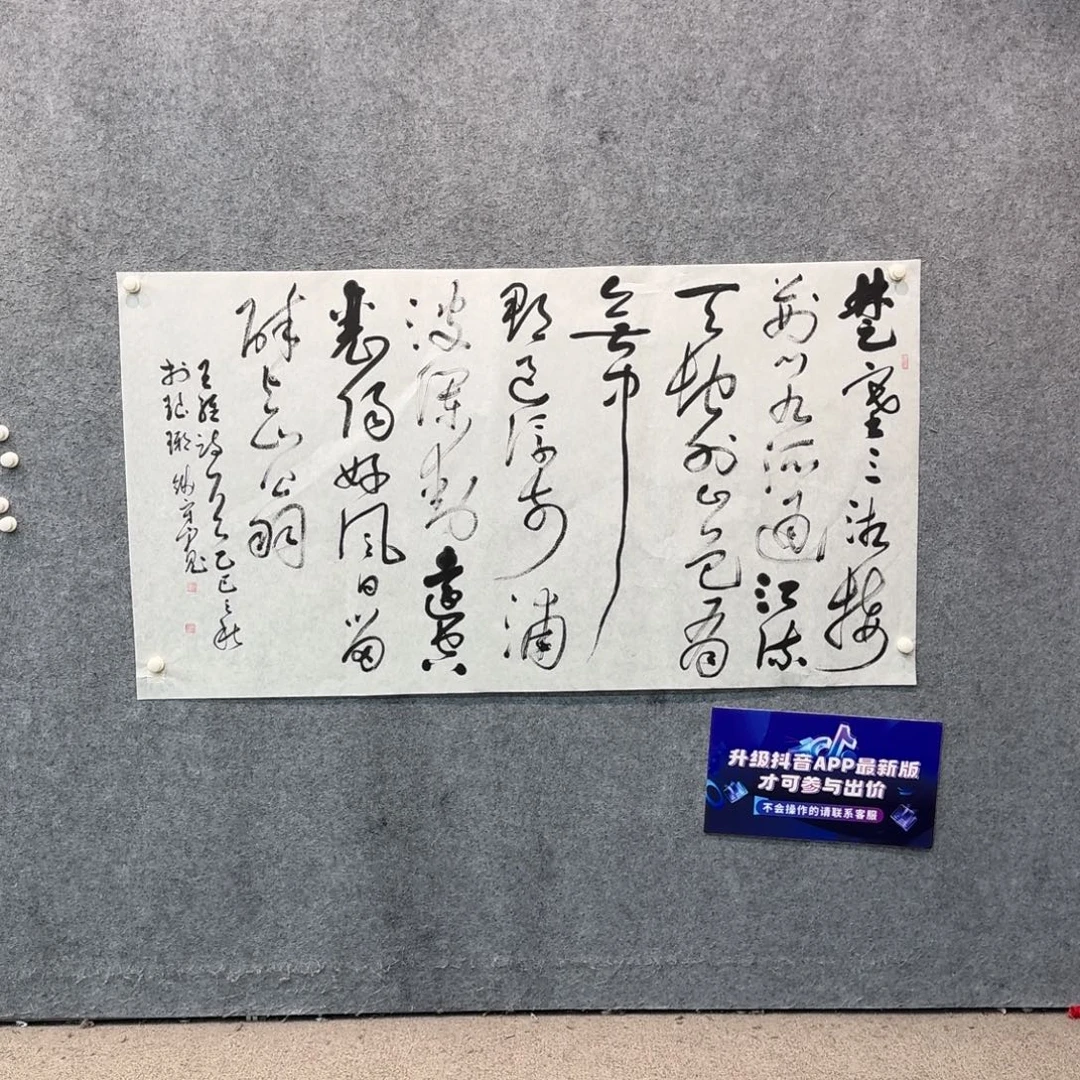 楚塞三湘接
荆门九派通江流
天地外山色有
無中
郡邑浮前浦
波澜動遠空
襄陽好風日留
醉与山翁
王維诗一首乙巳之秋
於琅琊
升级抖音APP最新版
才可参与出价
不会操作的请联系客服